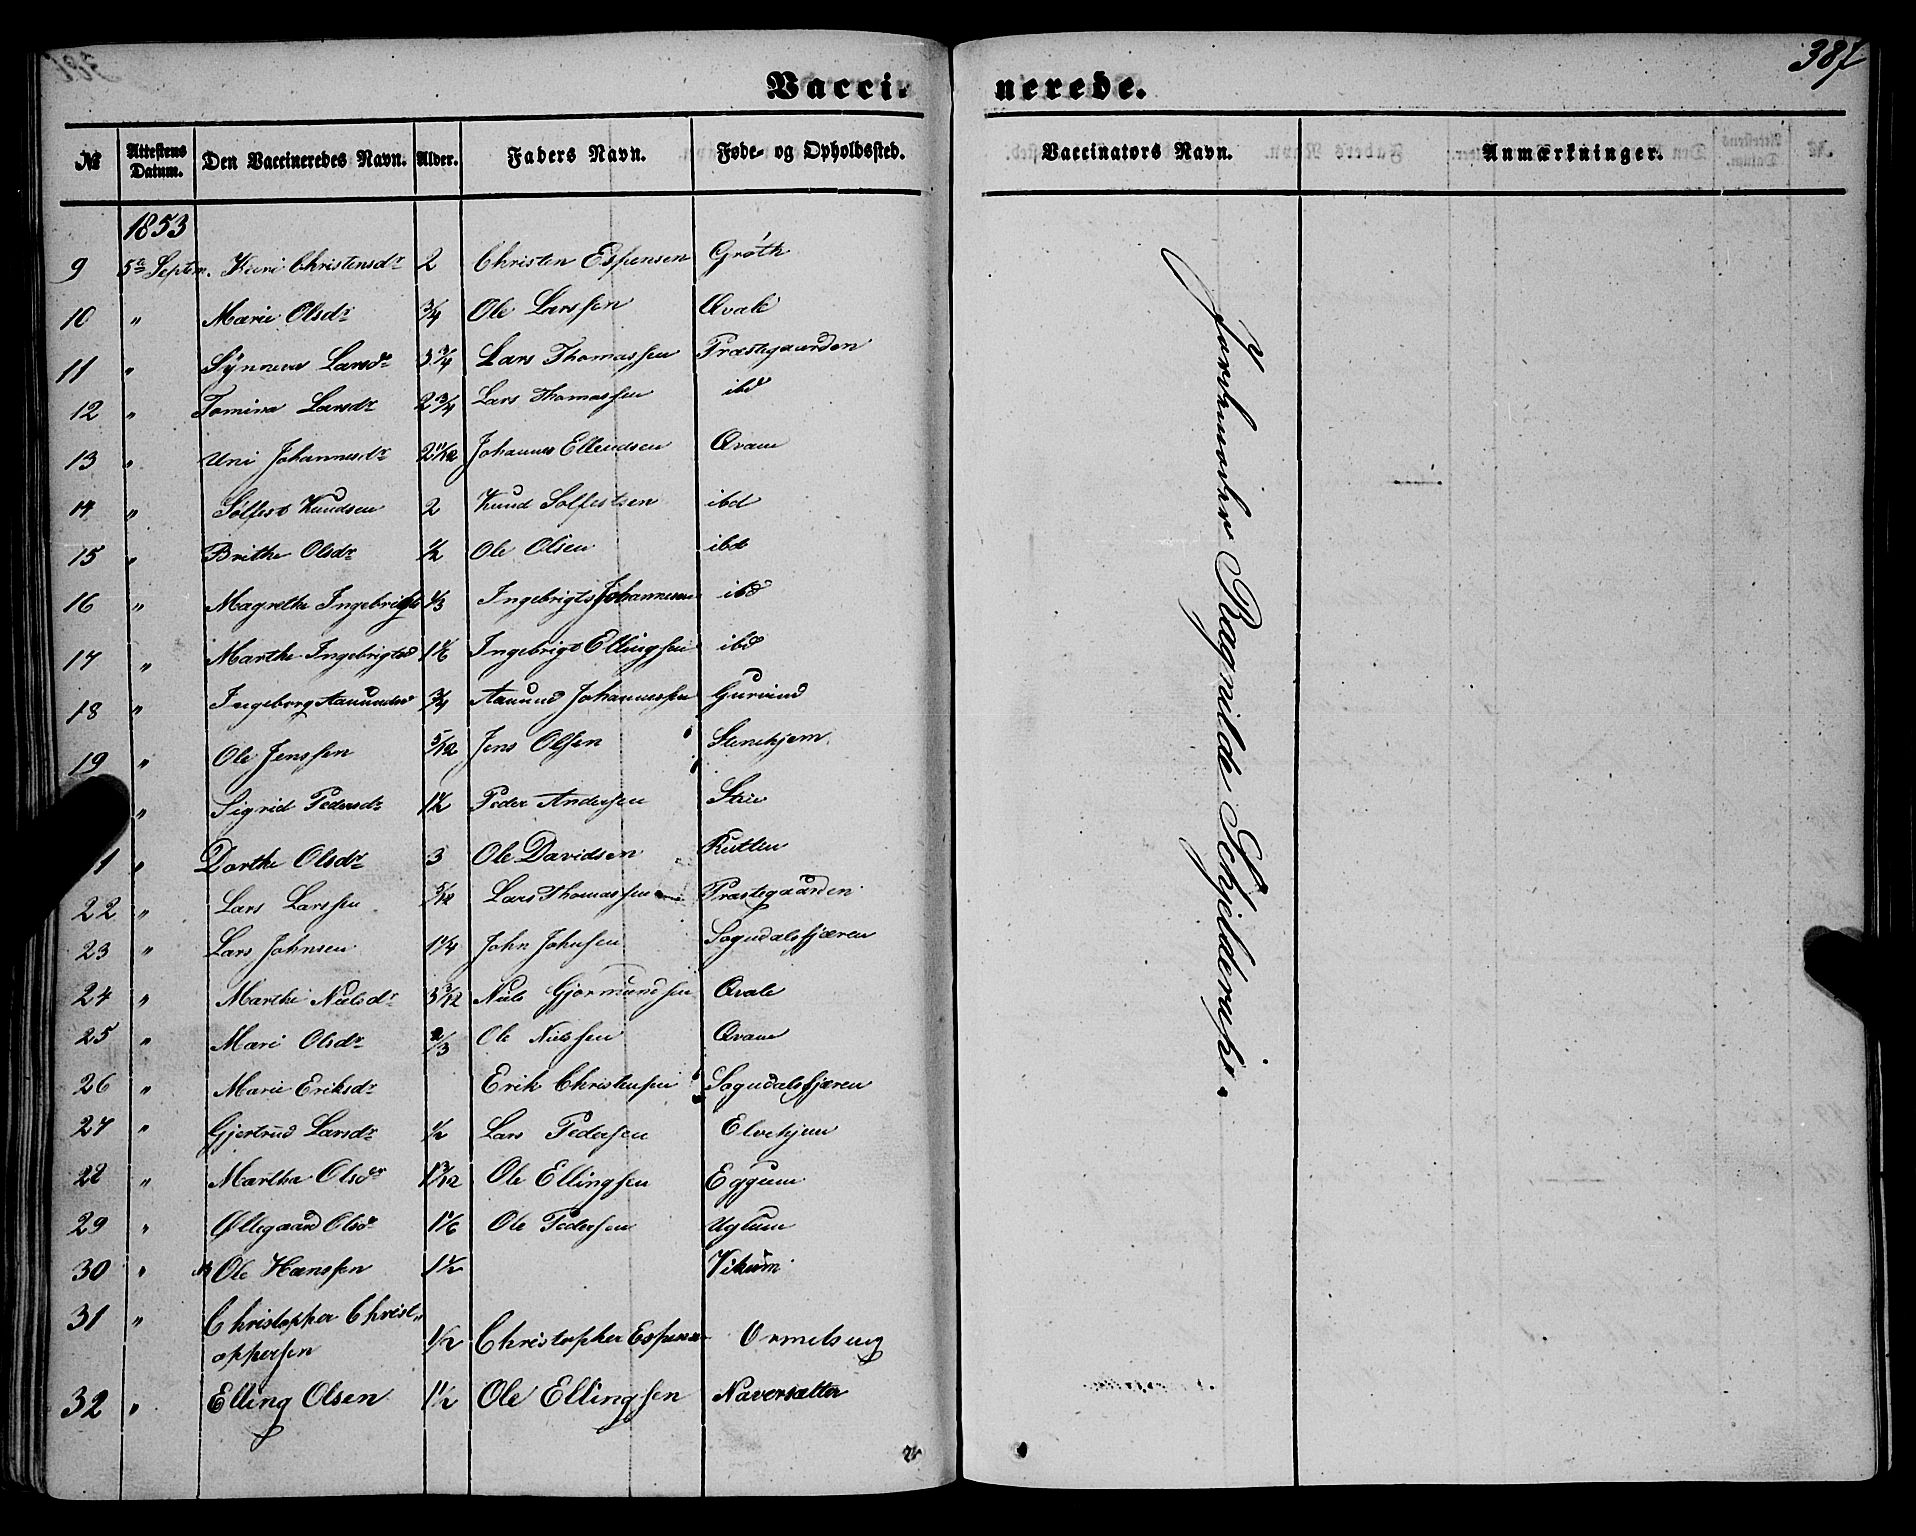 387
Vacci- nerede.
№ Attestens Datum. Den Vaccineredes Navn. Alder. Faders Navn. Føde- og Opholdssted. Vaccinators Navn. Anmærkninger.
1853
9 5te Septem. Kari Christensdr 2 Christen Espensen Grøth
10 " Marie Olsdr 3/4 Ole Larssen Qvale
11 " Synneva Larsdr 3 3/4 Lars Thomassen Præstegaarden
12 " Tomina Larsdr 2 3/4 Lars Thomassen ibd
13 " Uni Johannesdr 2 11/12 Johannes Ellendsen Qvam
14 " Sølfest Knudsen 2 Knud Solfestsen ibd
15 " Brithe Olsdr 1/2 Ole Olsen ibd
16 " Magrethe Ingebrigtsd 1/3 Ingebrigts Johannesen ibd
17 " Marthe Ingebrigtsd 1 1/6 Ingebrigt Ellingsen ibd
18 " Ingeborg Aamundsd 3/4 Aamund Johannessen Gurvind
19 " Ole Jenssen 5/12 Jens Olsen Stenehjem
" Sigrid Pedersdr 1 1/2 Peder Anderssen Stue
1 " Dorthe Olsdr 3 Ole Davidsen Rutlin
22 " Lars Larssen 5/12 Lars Thomassen Præstegaarden
23 " Lars Johnsen 1 1/4 John Johnsen Sogndalsfjæren
24 " Marthe Nielsdr 3 3/12 Niels Gjermundsen Qvale
25 " Mari Olsdr 2/3 Ole Nielssen Qvam
26 " Marie Eriksdr Erik Christensen Sogndalsfjæren
27 " Gjertrud Larsdr 1/2 Lars Pedersen Elvehjem
28 " Martha Olsdr 1 3/12 Ole Ellingsen Eggum
29 " Øllegaard Olsdr 1 1/6 Ole Pedersen Uglum
30 " Ole Hanssen 1 1/2 Vikum
31 " Christopher Christ-
oppersen 1/2 Christopher Espensen Ormelseng
32 " Elling Olsen 1 1/2 Ole Ellingsen Naversætter
Jordemoder Ragnilde Schjelderup.